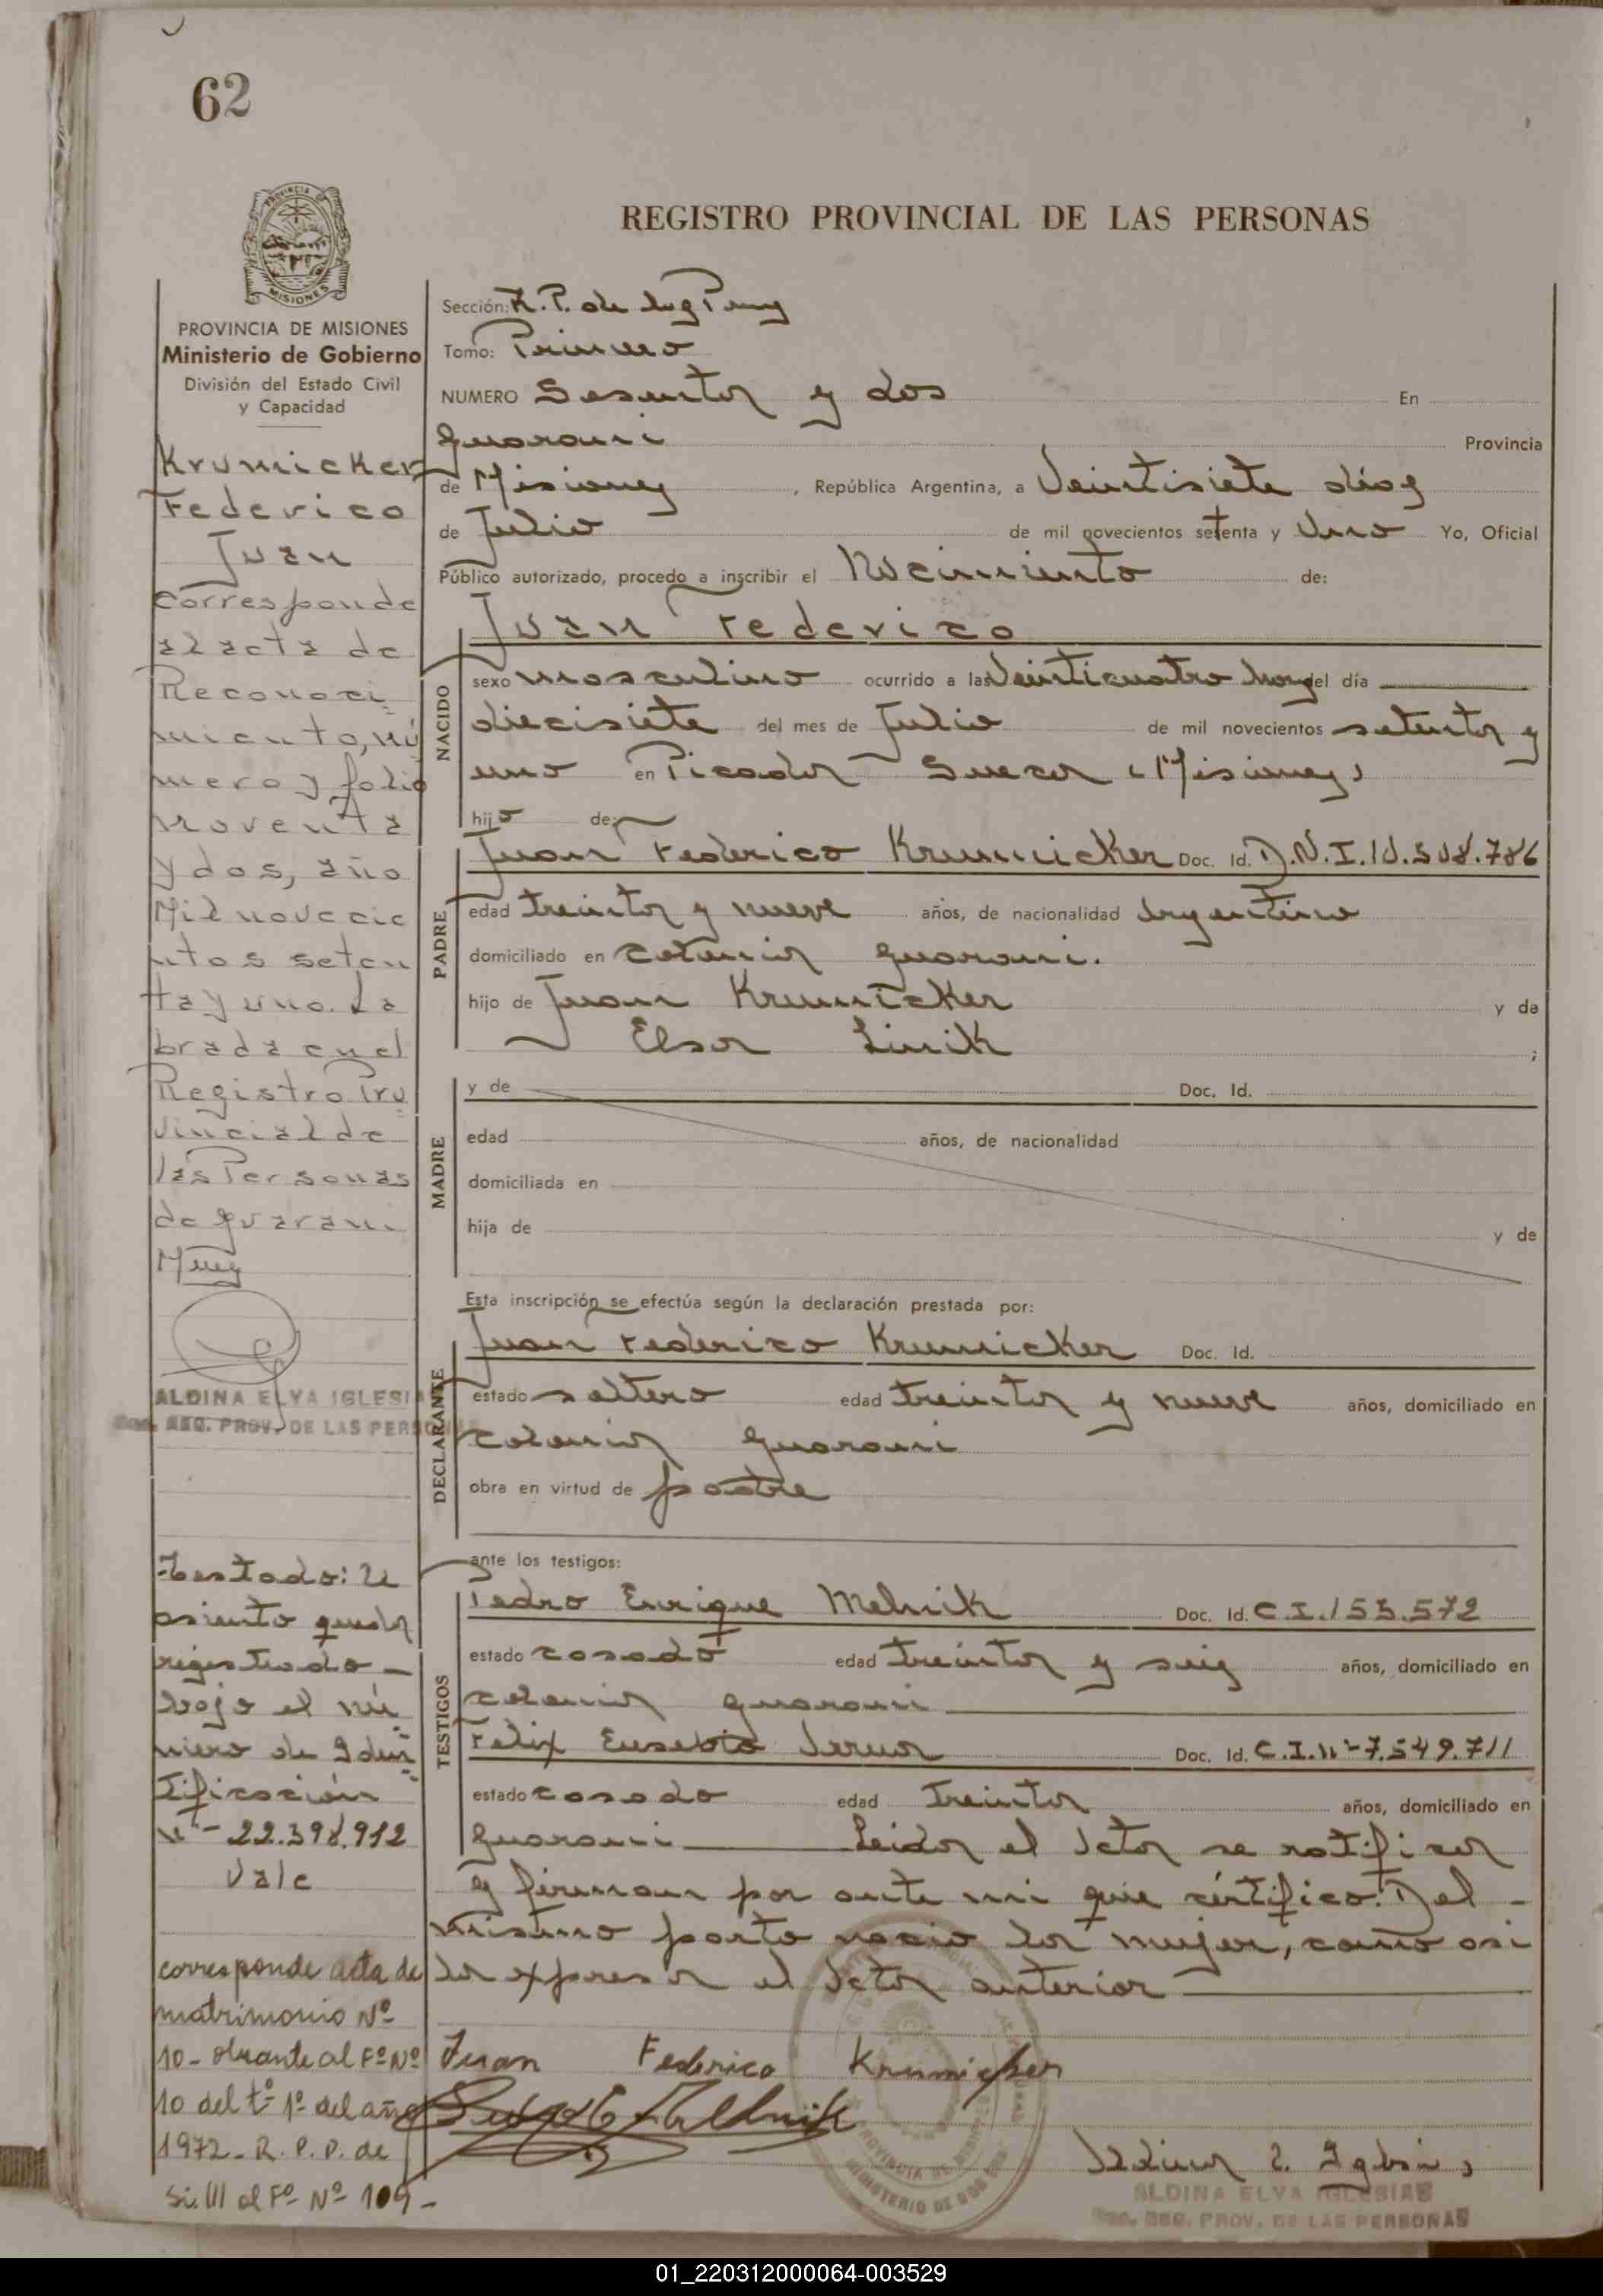 62
PROVINCIA
MISIONES
REGISTRO PROVINCIAL DE LAS PERSONAS
PROVINCIA DE MISIONES
Ministerio de Gobierno
División del Estado Civil
y Capacidad
Krumicker
Federico
Juan
Corresponde
al acta de
Reconoci
miento, nú
mero y folio
noventa
y dos, año
Mil novecie
ntos seten
ta y uno. La
brada en el
Registro Pro
vincial de
las Personas
de Guarani
Mnes
ALDINA ELVA IGLESIAS
REG. PROV. DE LAS PERSONAS
Testado: El
asiento queda
registrado
bajo el nú
mero de Iden
tificación
Nº 22.398.912
Vale
corresponde acta de
matrimonio Nº
10 - obrante al Fº Nº
10 del tº 1º del año
1972 - R. P. P. de
al Fº Nº 109 -
Sección: R. P. de las Pnas
Tomo: Primero
NUMERO Sesenta y dos En
Guarani Provincia
de Misiones, República Argentina, a Veintisiete dias
de Julio de mil novecientos setenta y Uno Yo, Oficial
Público autorizado, procedo a inscribir el Nacimiento de:
Juan Federico
NACIDO
sexo masculino ocurrido a las Veinticuatro horas del día
diecisiete del mes de Julio de mil novecientos setenta y
uno en Picada Sueca (Misiones)
hijo de:
PADRE
Juan Federico Krumicker Doc. Id. D.N.I.10.508.786
edad treinta y nueve años, de nacionalidad Argentino
domiciliado en colonia Guarani.
hijo de Juan Krumicker y de
Elsa Linik ;
MADRE
y de Doc. Id.
edad años, de nacionalidad
domiciliada en
hija de y de
Esta inscripción se efectúa según la declaración prestada por:
DECLARANTE
Juan Federico Krumicker Doc. Id.
estado soltero edad treinta y nueve años, domiciliado en
colonia Guarani
obra en virtud de padre
ante los testigos:
TESTIGOS
Pedro Enrique Melnik Doc. Id. C.I.153.572
estado casado edad treinta y seis años, domiciliado en
colonia Guarani
Felix Eusebio Doc. Id. C.I.Nº-7.549.711
estado casado edad Treinta años, domiciliado en
Guarani Leida el Acta se ratifican
y firman por ante mi que certifico. Del
mismo parto nacio la mujer, como asi
la expresa el Acta anterior
Juan Federico Krumicker
PROVINCIA DE MISIONES
MINISTERIO DE GOBIERNO
Aldina E. Iglesias
ALDINA ELVA IGLESIAS
REG. PROV. DE LAS PERSONAS
01_220312000064-003529